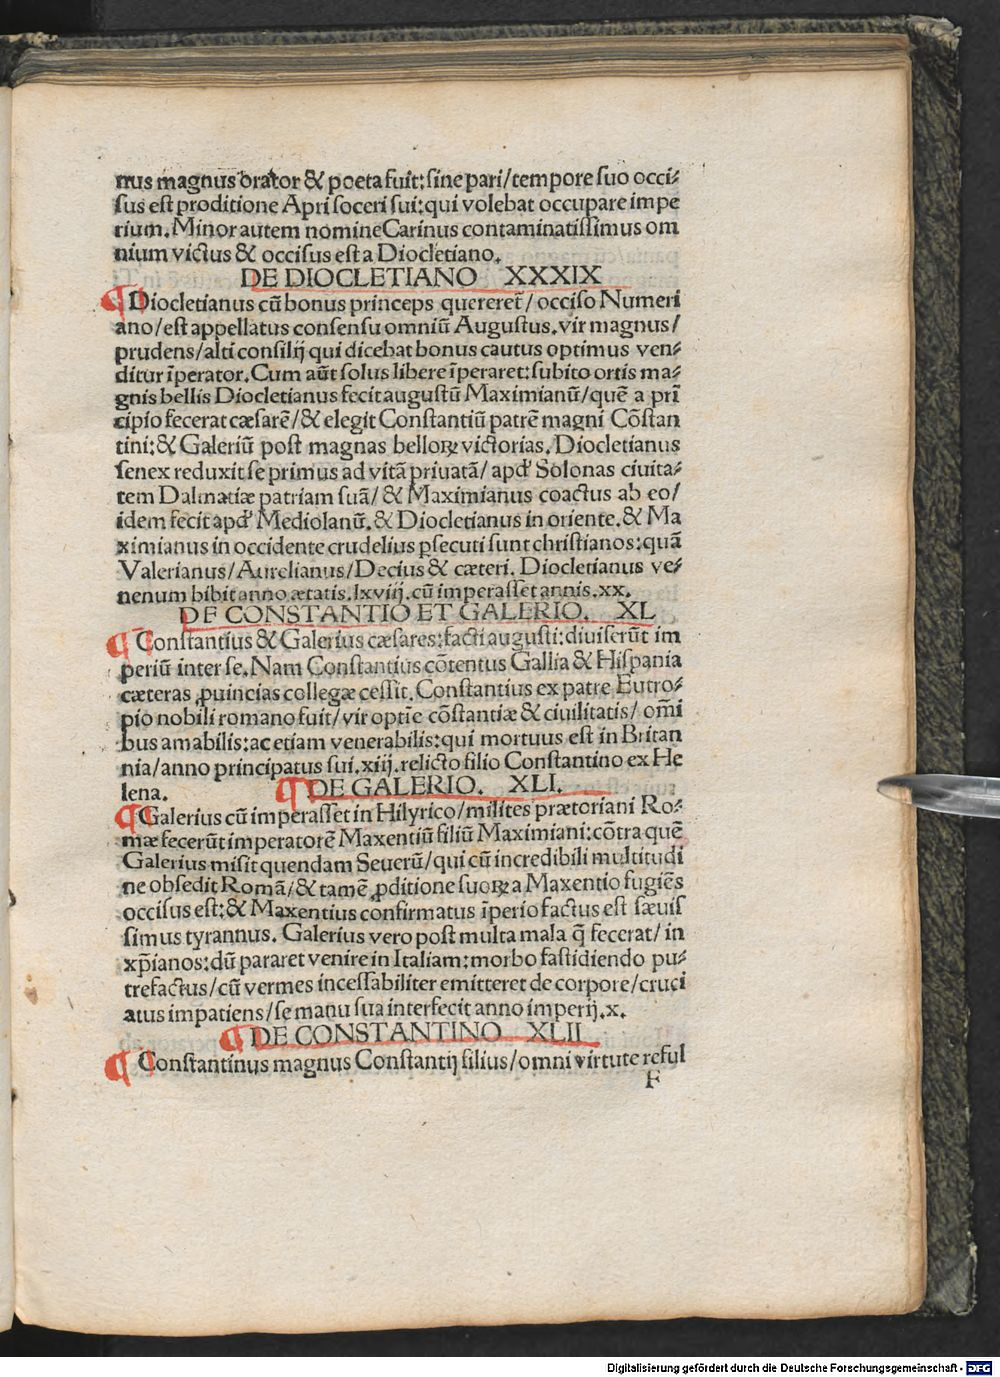 nus magnus orator & poeta fuit: sine pari/tempore suo occi⸗
sus est proditione Apri soceri sui: qui volebat occupare impe
rium. Minor autem nomine Carinus contaminatissimus om
nium victus & occisus est a Diocletiano.
DE DIOCLETIANO XXXIX
¶ Diocletianus cū bonus princeps quereret̄/ occiso Numeri
ano/est appellatus consensu omniū Augustus. vir magnus/
prudens/alti consilij qui dicebat bonus cautus optimus ven⸗
ditur īperator. Cum aūt solus libere īperaret: subito ortis ma⸗
gnis bellis Diocletianus fecit augustū Maximianū/quē a pri̅
cipio fecerat cæsarē/& elegit Constantiū patrē magni Cōstan
tini: & Galeriū post magnas belloꝝ victorias. Diocletianus
senex reduxit se primus ad vitā priuatā/ apd' Solonas ciuita⸗
tem Dalmatiæ patriam suā/ & Maximianus coactus ab eo/
idem fecit apd' Mediolanū. & Diocletianus in oriente. & Ma
ximianus in occidente crudelius ꝑsecuti sunt christianos: quā
Valerianus/Aurelianus/Decius & cæteri. Diocletianus ve⸗
nenum bibit anno ætatis. lxviij. cū imperasset annis. xx.
DE CONSTANTIO ET GALERIO. XL
¶ Constantius & Galerius cæsares: facti augusti: diuiserūt im
periū inter se. Nam Constantius cōtentus Gallia & Hispania
cæteras ꝓuincias collegæ cessit. Constantius ex patre Eutro⸗
pio nobili romano fuit/ vir optīe cōstantiæ & ciuilitatis/ om̄i
bus amabilis: ac etiam venerabilis: qui mortuus est in Britan
nia/anno principatus sui. xiij. relicto filio Constantino ex He
lena. ¶ DE GALERIO. XLI.
¶ Galerius cū imperasset in Hilyrico/milites prætoriani Ro⸗
mæ fecerūt imperatorē Maxentiū filiū Maximiani: cōtra quē
Galerius misit quendam Seuerū/qui cū incredibili multitudi
ne obsedit Romā/& tamē ꝓditione suoꝝ a Maxentio fugiēs
occisus est: & Maxentius confirmatus īperio factus est sæuis
simus tyrannus. Galerius vero post multa mala q̄ fecerat/ in
xp̄ianos: dū pararet venire in Italiam: morbo fastidiendo pu⸗
trefactus/cū vermes incessabiliter emitteret de corpore/cruci
atus impatiens/se manu sua interfecit anno imperij. x.
¶ DE CONSTANTINO XLII
¶ Constantinus magnus Constantij filius/omni virtute reful
F
Digitalisierung gefördert durch die Deutsche Forschungsgemeinschaft - DFG